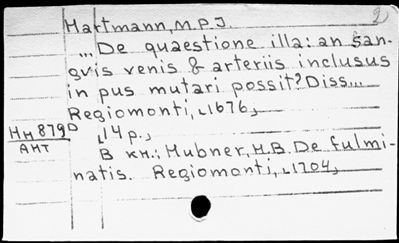 2
Hartmann, M.P.J.
...De quaestione illa: an san-
gvis venis & arteriis inclusus
in pus mutari possit? Diss...
Regiomonti, ⌊1676⌋
Нм 879D
АНТ
⌊14 p.⌋
В кн.: Hubner, H.B. De fulmi-
natis. Regiomonti, ⌊1704⌋